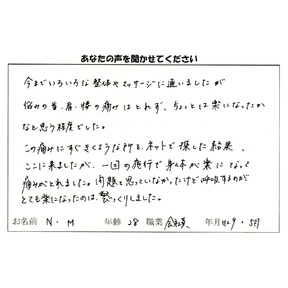 あなたの声を聞かせてください
今までいろいろな整体やマッサージに通いましたが
悩みの首・肩・腰の痛みはとれず、ちょっとは楽になったか
なと思う程度でした。
この痛みにすぐきくような所を、ネットで探した結果、
ここに来ましたが、一回の施術で身体が楽になって
痛みがとれました。問題と思っていなかったけど呼吸するのが
とても楽になったのは、驚っくりしました。
お名前 N・M 年齢 28 職業 会社員 年月 H29・5月